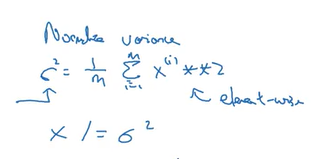 Normalize variance
σ² = 1/m Σᵢ₌₁ᵐ x⁽ⁱ⁾ **2
element-wise
x /= σ²